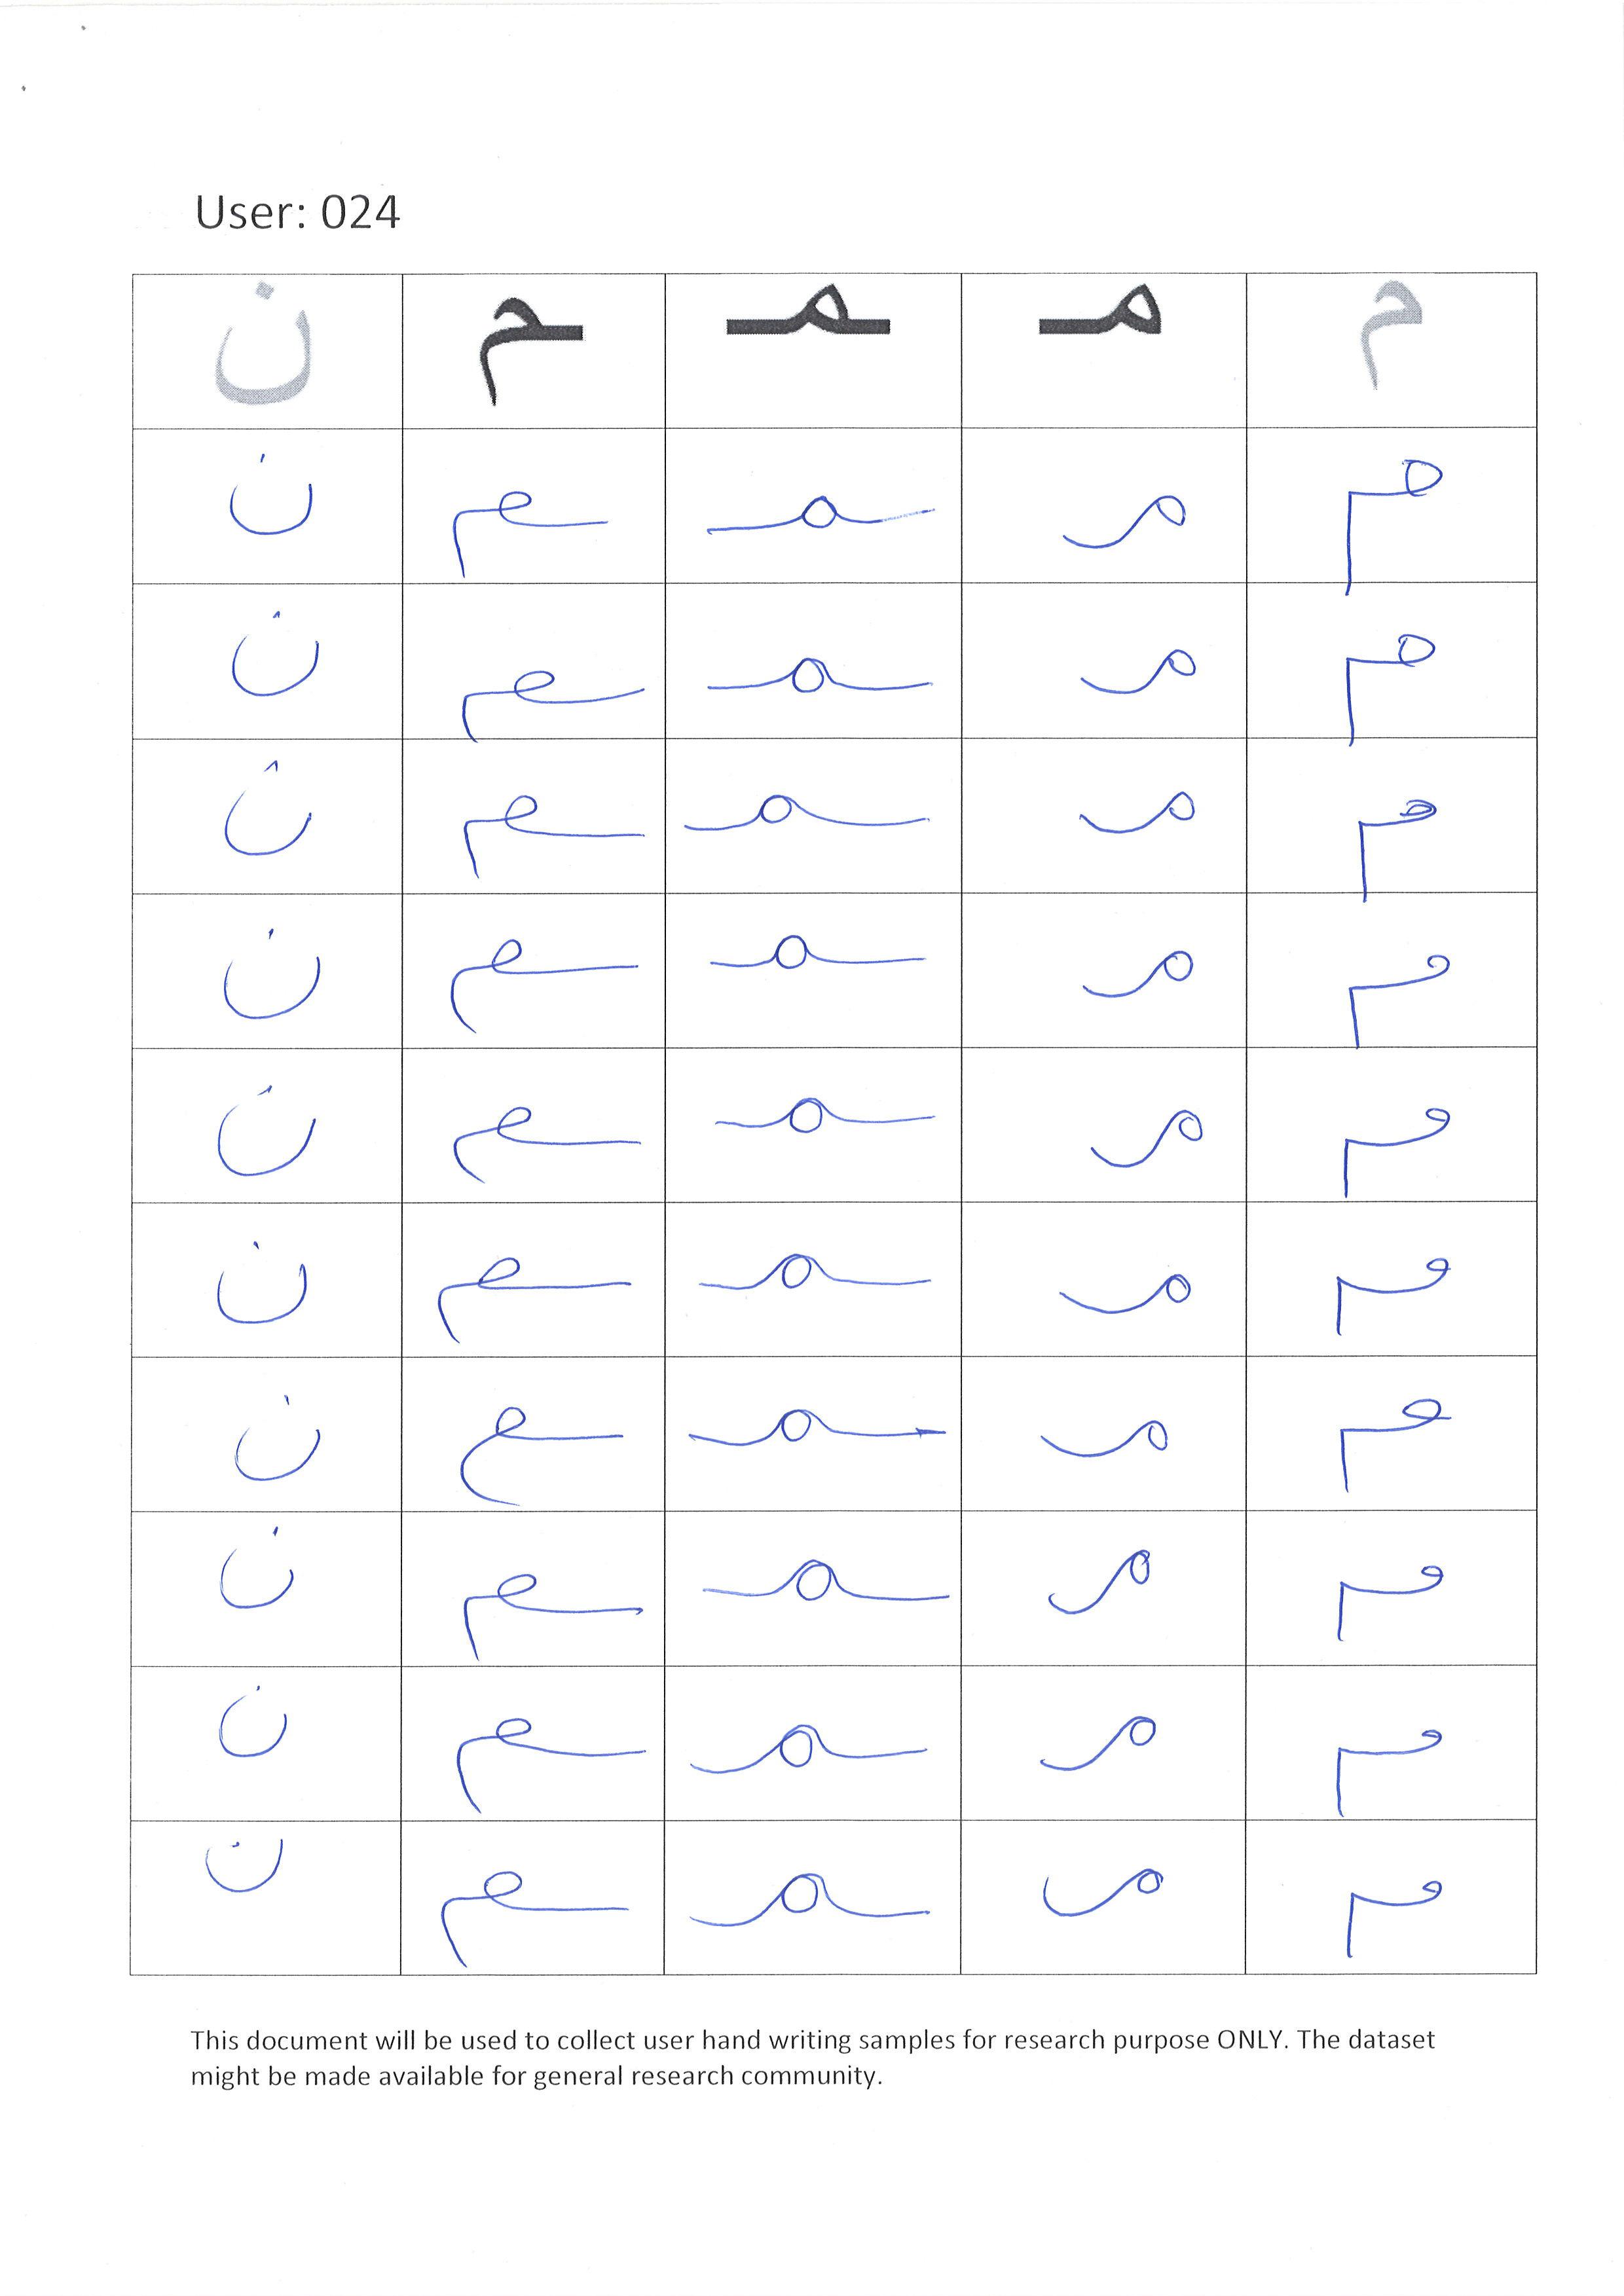 User: 024
م مـ ـمـ ـم ن
م مـ ـمـ ـم ن
م مـ ـمـ ـم ن
م مـ ـمـ ـم ن
م مـ ـمـ ـم ن
م مـ ـمـ ـم ن
م مـ ـمـ ـم ن
م مـ ـمـ ـم ن
م مـ ـمـ ـم ن
م مـ ـمـ ـم ن
م مـ ـمـ ـم ن
This document will be used to collect user hand writing samples for research purpose ONLY. The dataset
might be made available for general research community.